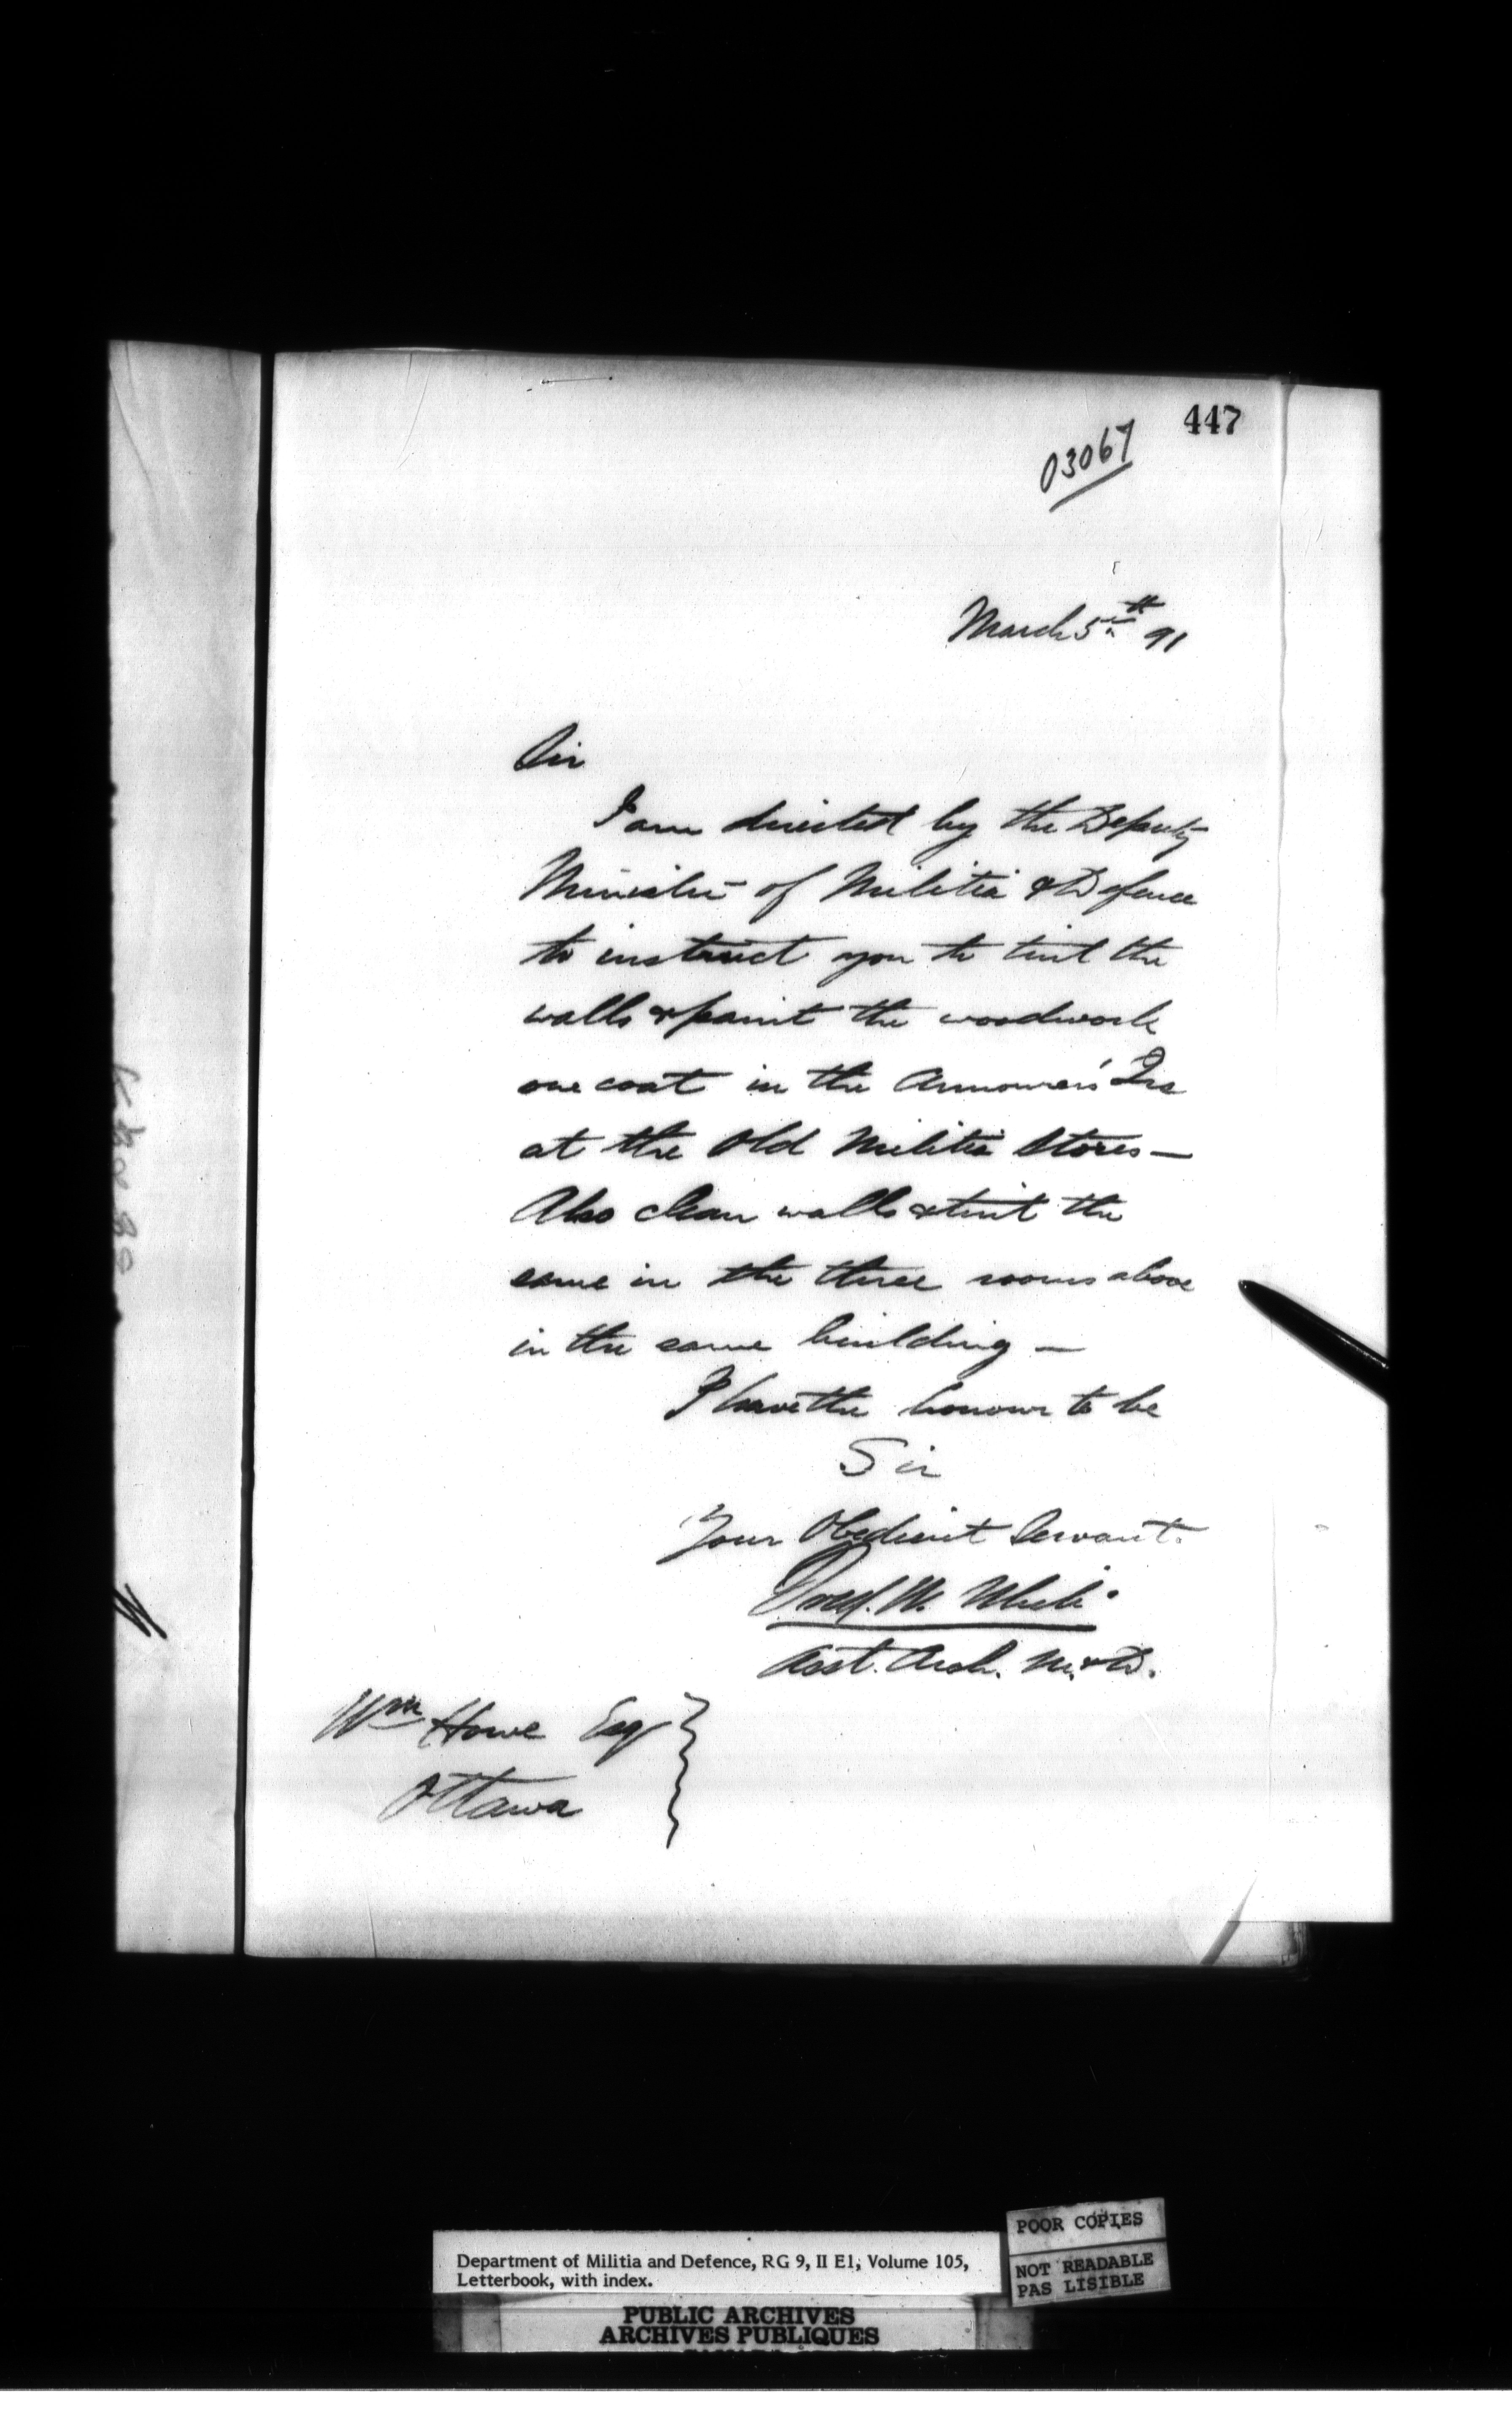 447
03067
March 5th 91
Sir
I am directed by the Deputy
Minister of Militia & Defence
to instruct you to tint the
walls & paint the woodwork
one coat in the Armourer's Qrs
at the Old Militia Stores—
Also clean walls & tint the
same in the three rooms above
in the same building—
I have the honour to be
Sir
Your Obedient Servant.
Fred. W. White.
Asst. Arch. M. & D.
Wm Howe Esq
Ottawa
Department of Militia and Defence, RG 9, II E1, Volume 105,
Letterbook, with index.
POOR COPIES
NOT READABLE
PAS LISIBLE
PUBLIC ARCHIVES
ARCHIVES PUBLIQUES